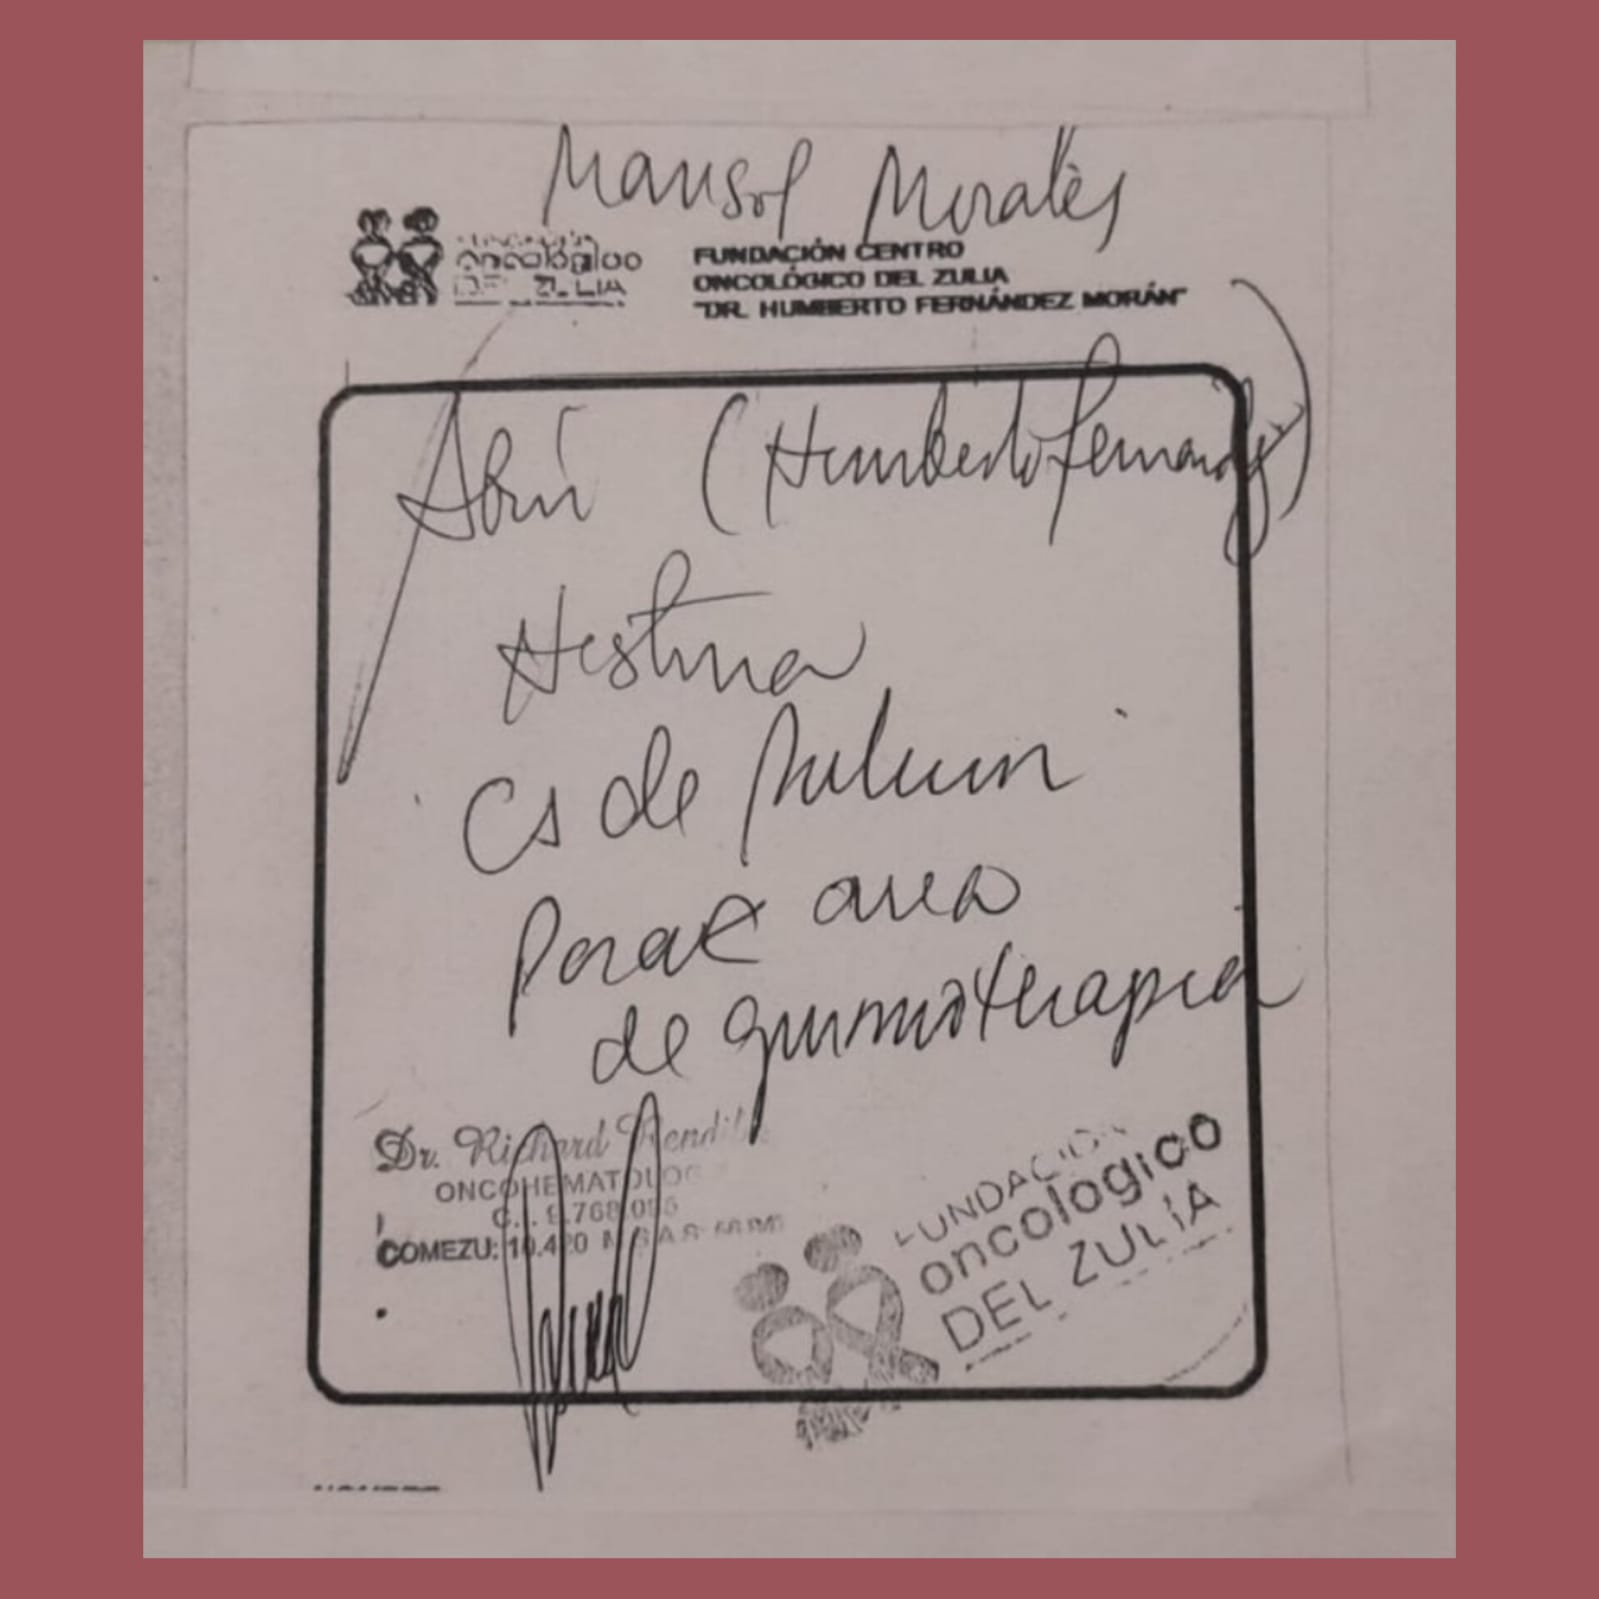 Marisol Morales
Fundación
oncológico
DEL ZULIA
FUNDACIÓN CENTRO
ONCOLÓGICO DEL ZULIA
"DR. HUMBERTO FERNÁNDEZ MORÁN"
Abrir (Humberto Fernandez)
Historia
Ca de Pulmon
Para area
de quimioterapia
Dr. Richard
ONCOHEMATOLOG
COMEZU: 10.420
FUNDACIÓN
oncologico
DEL ZULIA